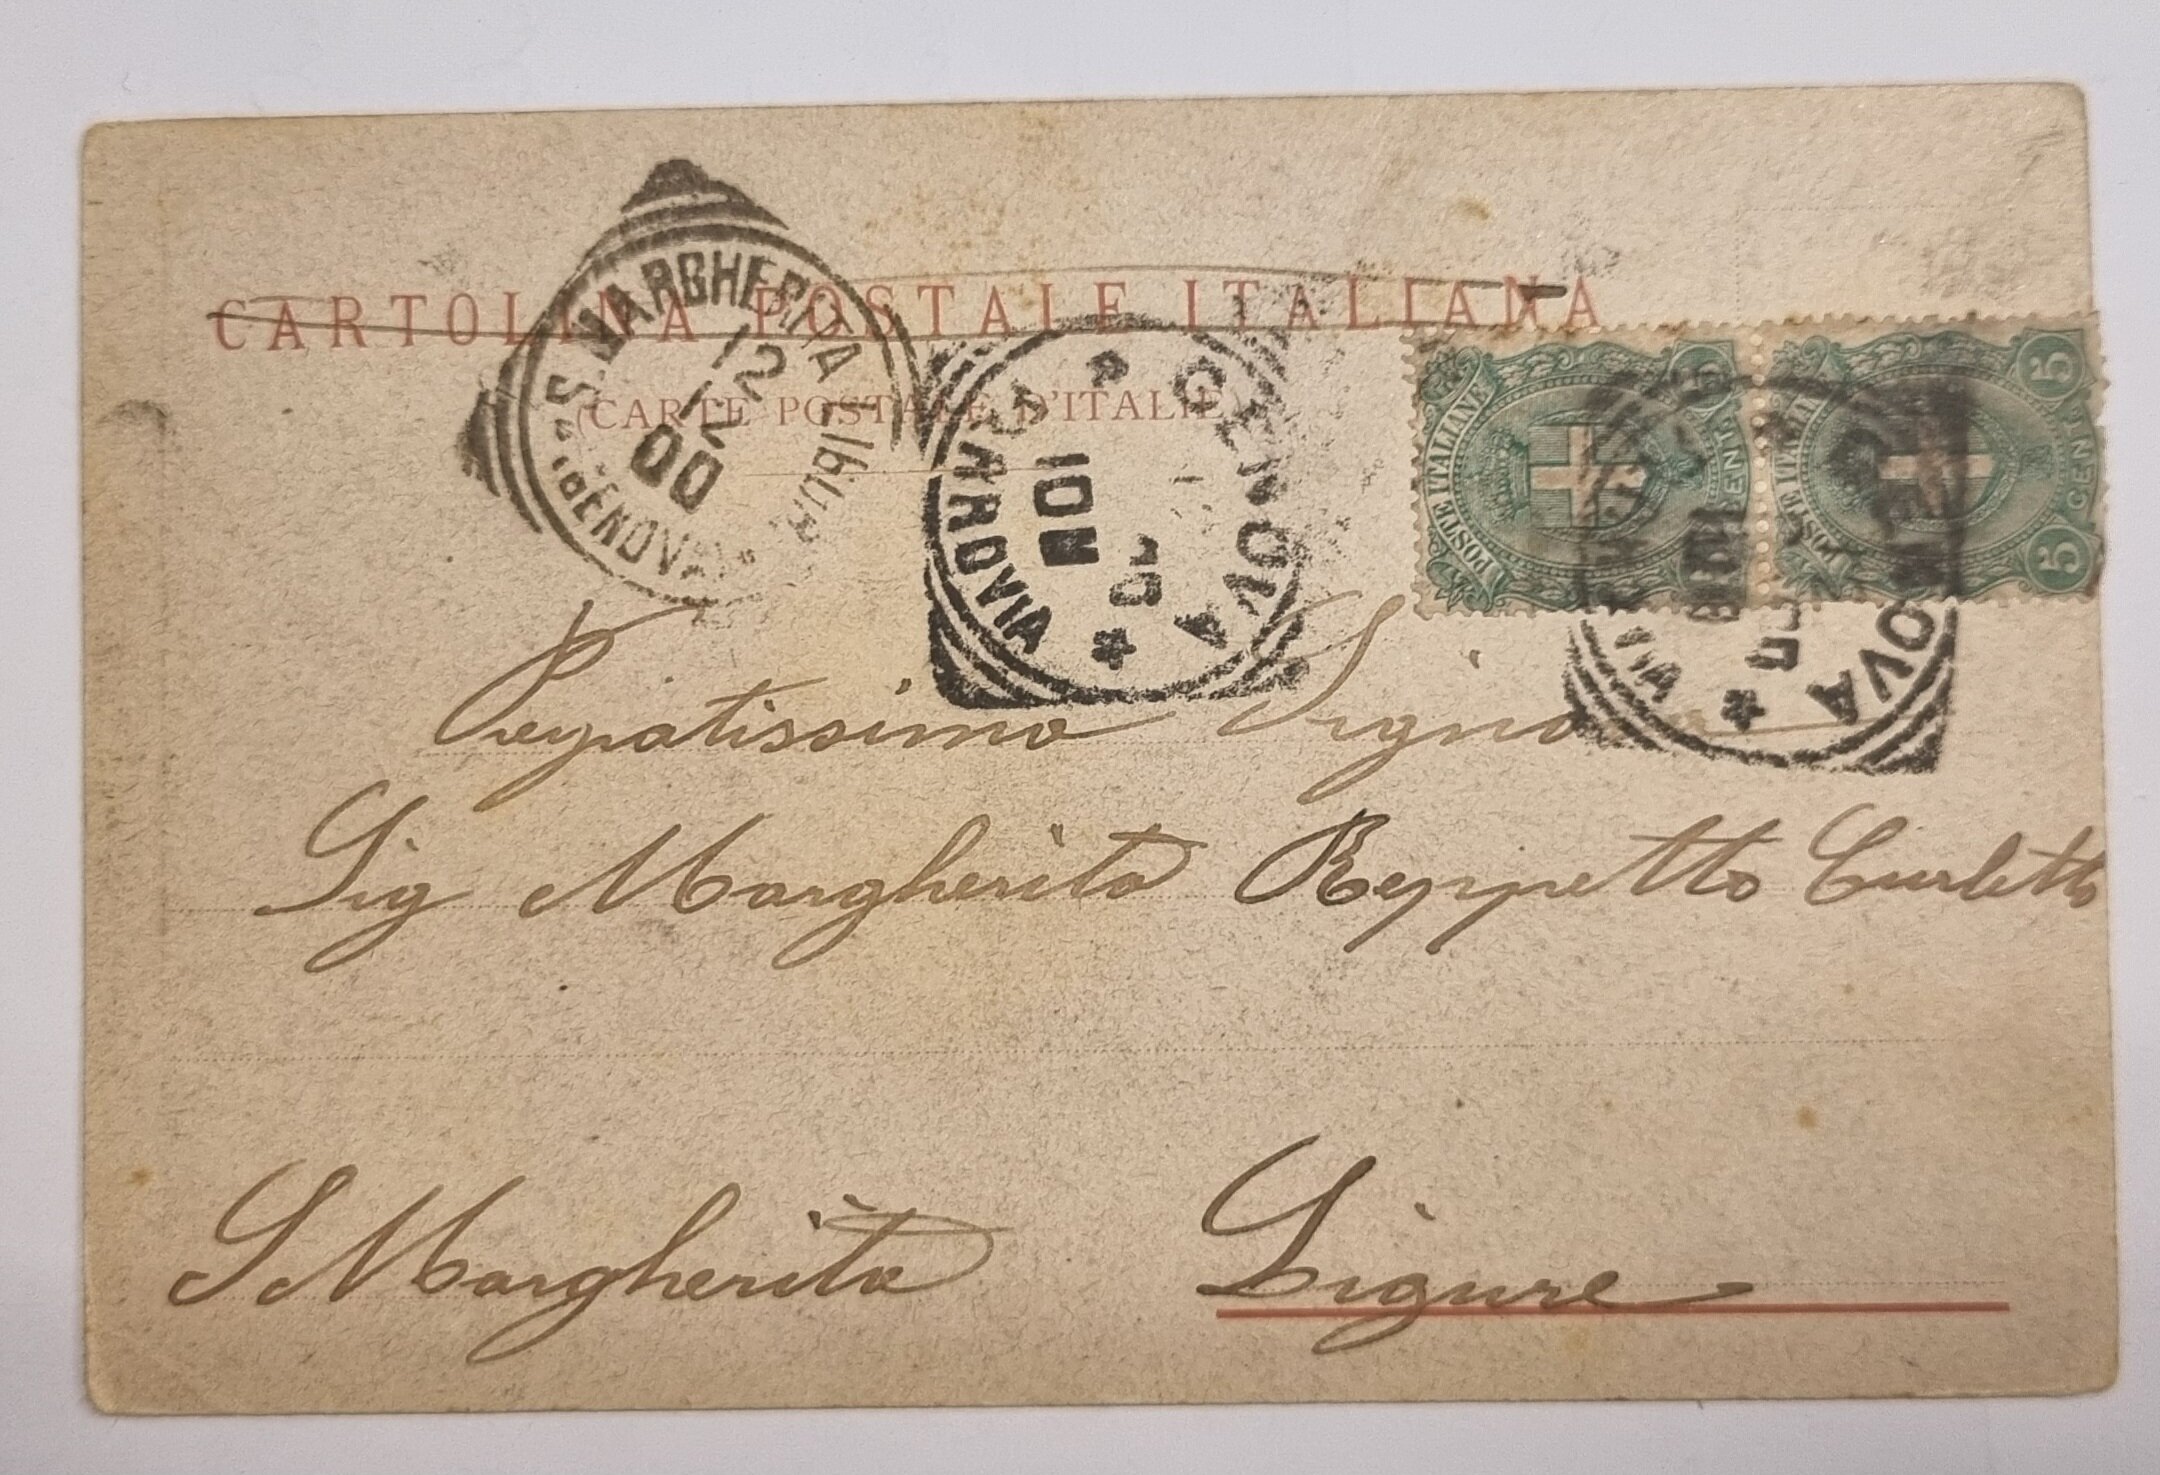 CARTOLINA POSTALE ITALIANA
(CARTE POSTALE D'ITALIE)
S. MARGHERITA LIGURE
12
12
00
(GENOVA)
GENOVA
FERROVIA
10 M
POSTE ITALIANE
CENT. 5
POSTE ITALIANE
5 CENT. 5
OVA
VIA
Pregiatissima Signora
Sig Margherita Reppetto Curletto
S Margherita Ligure